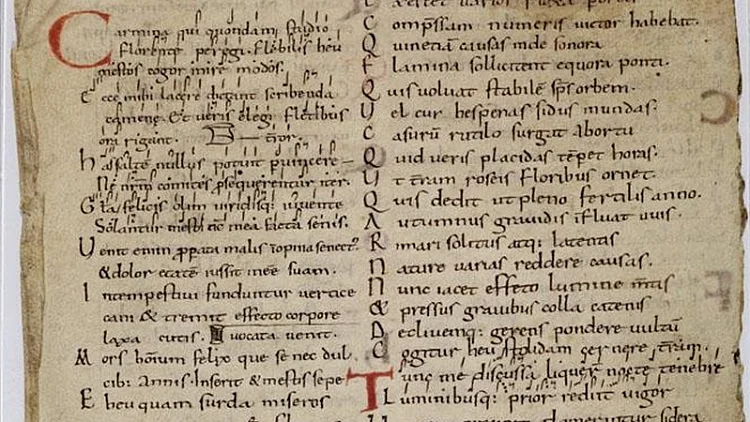 Carmina qui quondam studio
florente peregi. Flebilis heu
mestos cogor inire modos.
Ecce mihi lacere dictant scribenda
camene. Et ueris elegi fletibus
ora rigant.
has saltē nullus potuit puincere
Ne nr̄m comites ꝓsequerentur iter.
Glã felicis olim uiridisq; iuuente
Solantur mesti nc̄ mea facta senis.
Venit enim ꝓpata malis inopina senect'
& dolor etatē iussit inēe suam.
Intempestiui funduntur uertice
cani & tremit effecto corpore
laxa cutis. uocata uenit.
Mors hoīum felix que se nec dul
cib; annis. Inserit & mestis sepe
Eheu quam surda miseros
Compr̃ssam numeris uictor habebat.
Quinetiā causas unde sonora
Flamina sollicitent equora ponti.
Quis uoluat stabilē sp̄s orbem.
Vel cur hesperias sidus in undas
Casurū rutilo surgat abortu
Quid ueris placidas tēpet horas.
Vt t̄ram roseis floribus ornet.
Quis dedit ut pleno fertilis anno.
Autumnus grauidis īfluat uuis.
Rimari solitus atq; latentis
Nature uarias reddere causas.
Nunc iacet effeto lumine m̄tis
& pressus grauibus colla catenis
Decliuemq; gerens pondere uultū
Cogitur heu stolidam cernere t̄ram.
Tunc me discussa liquer̄ nocte tenebrę
Luminibusq; prior rediit uigor
sidera